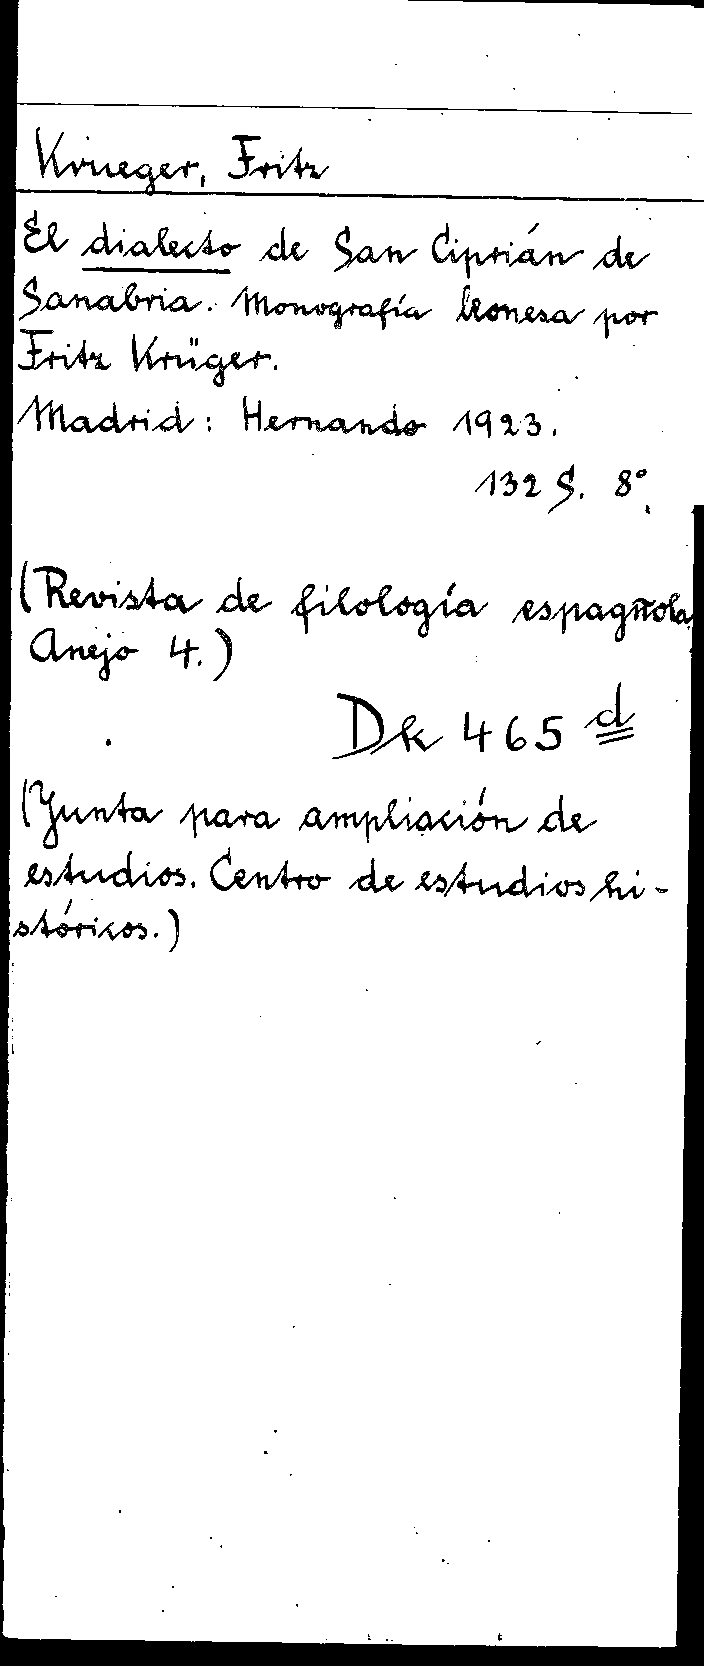 Krueger, Fritz
El dialecto de San Ciprián de
Sanabria. Monografía leonesa por
Fritz Krüger.
Madrid: Hernando 1923.
132 S. 8°.
(Revista de filología espagñola
Anejo 4.)
Dk 465 d
(Junta para ampliación de
estudios. Centro de estudios hi-
stóricos.)